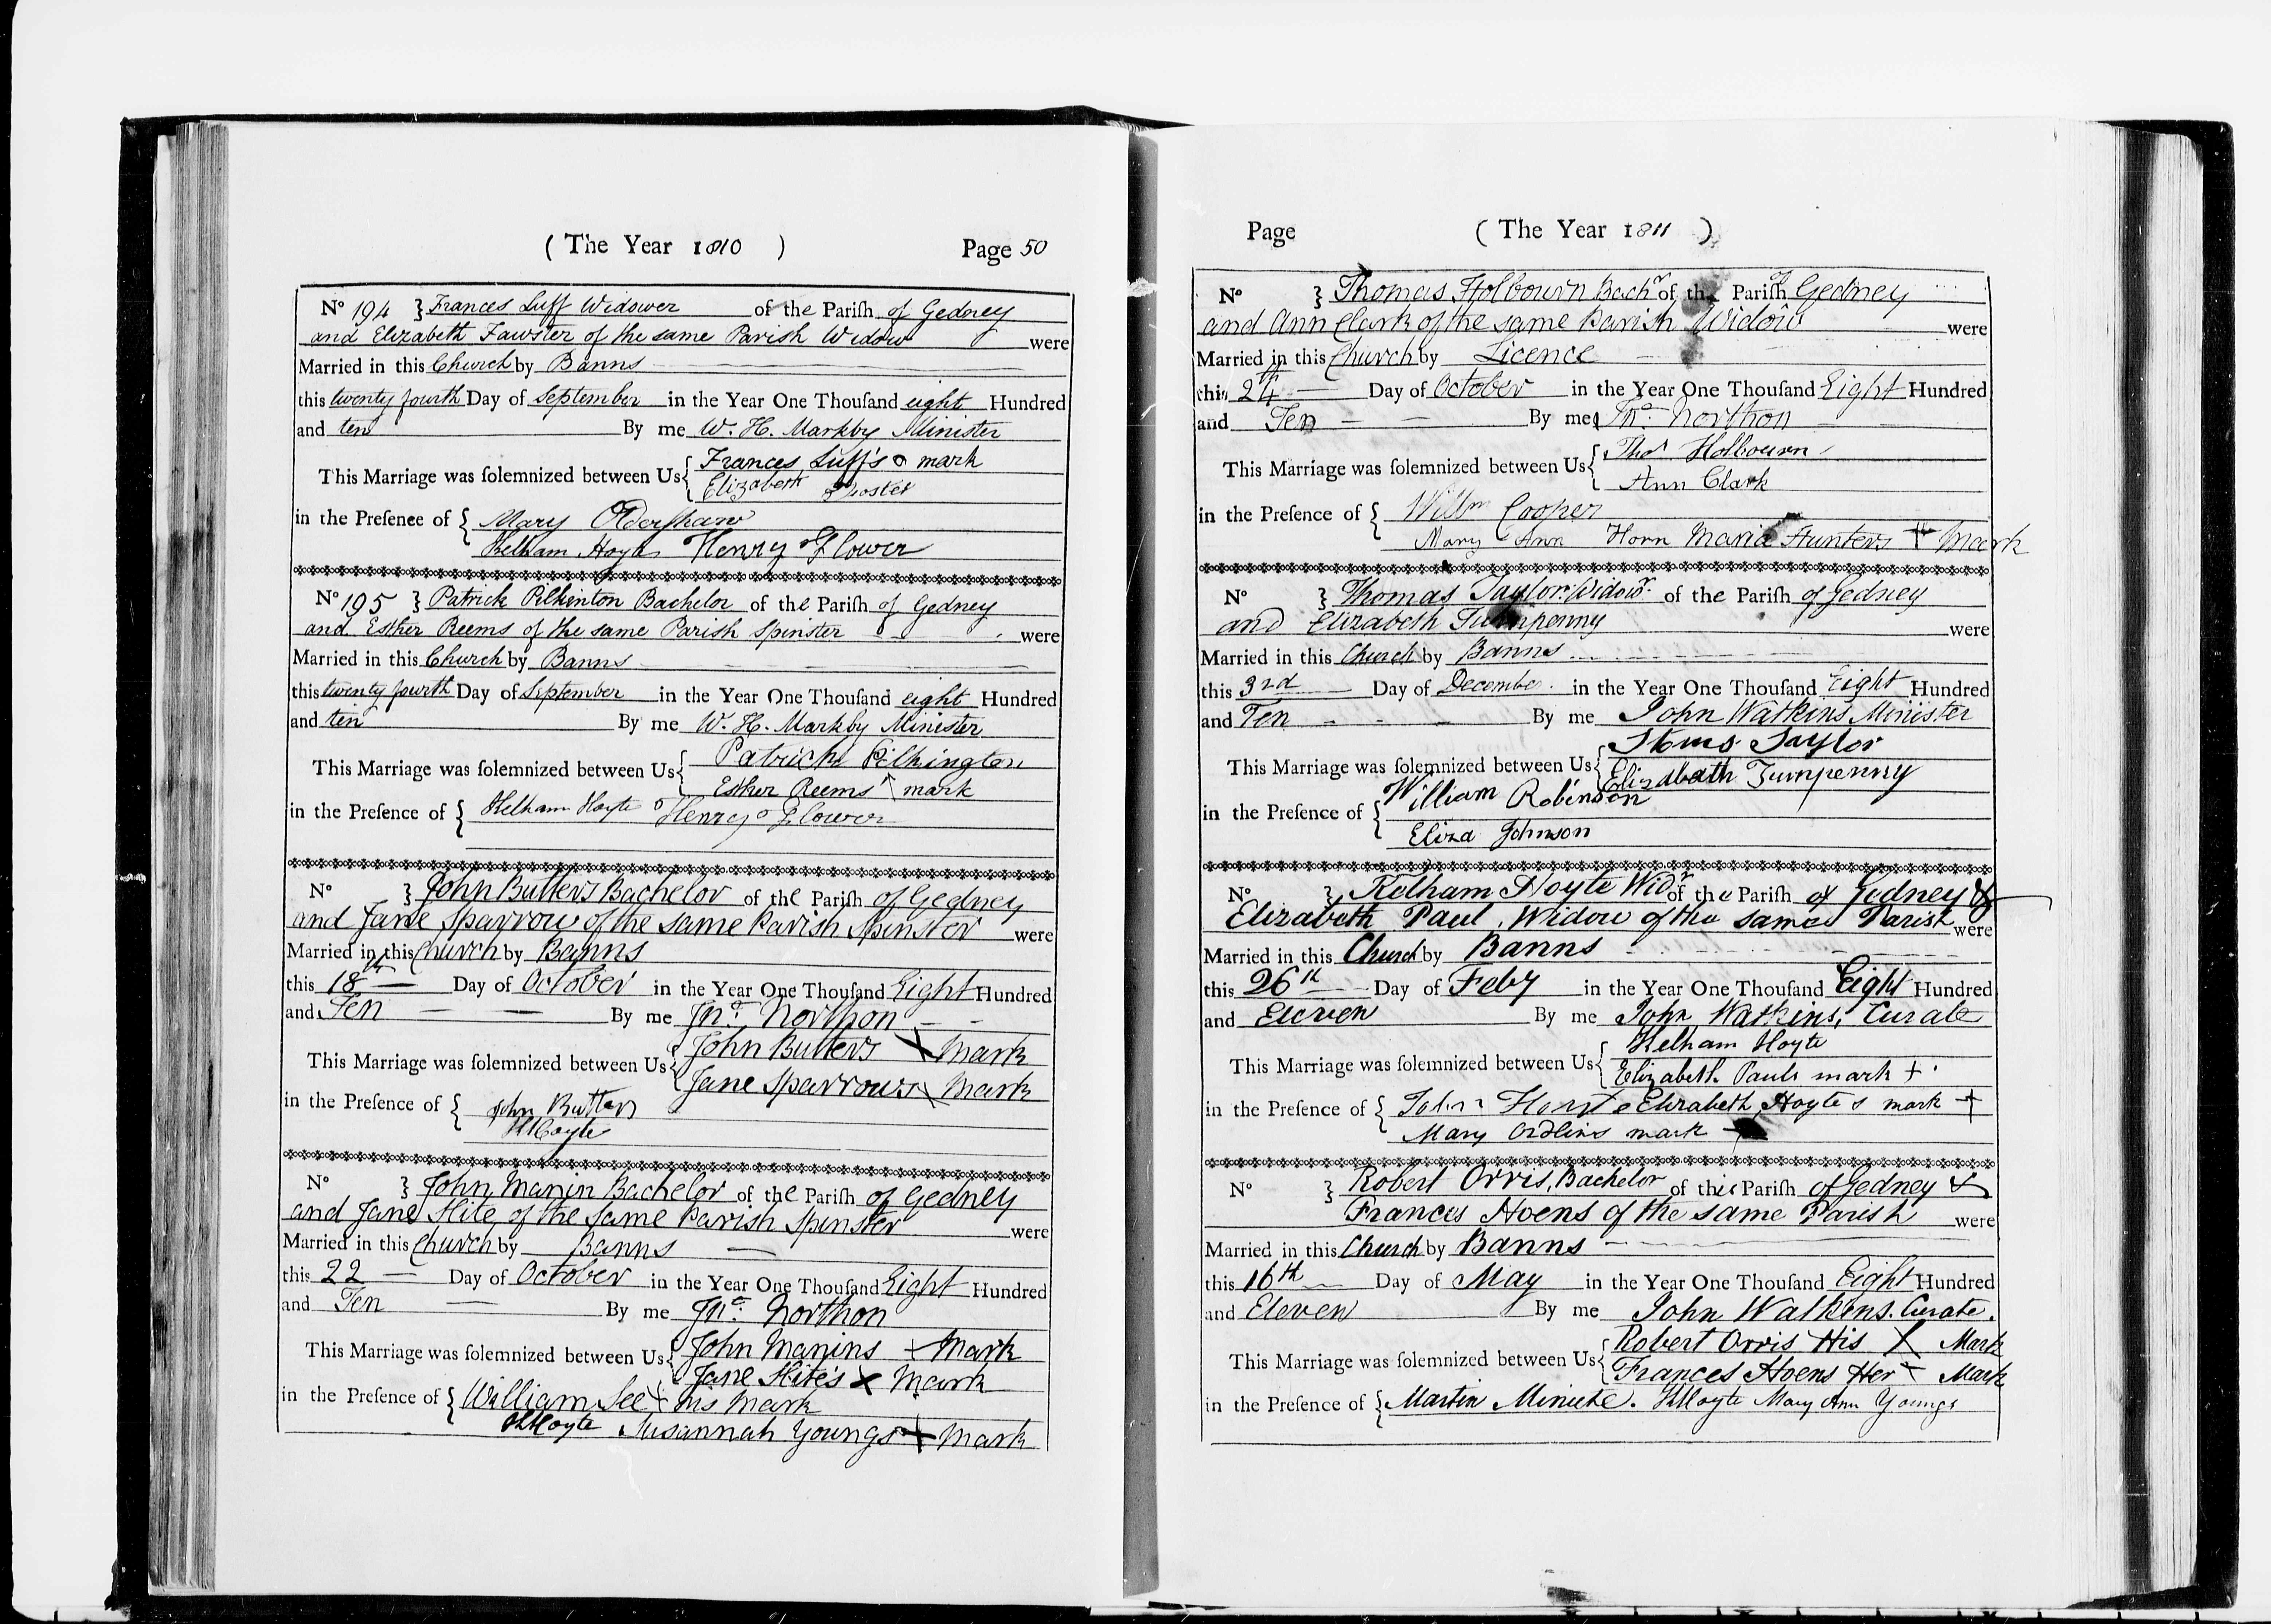 ( The Year 1810 ) Page 50
No 194 } Frances Luff Widower of the Parish of Gedney
and Elizabeth Fawster of the same Parish Widow were
Married in this Church by Banns
this twenty fourth Day of September in the Year One Thousand eight Hundred
and ten By me W. H. Markby Minister
This Marriage was solemnized between Us { Frances Luff's o mark
Elizabeth
in the Presence of { Mary Oldershaw
Kelham Hoyte Henry Flower
No 195 } Patrick Pilkinton Bachelor of the Parish of Gedney
and Esther Reems of the same Parish Spinster were
Married in this Church by Banns
this twenty fourth Day of September in the Year One Thousand eight Hundred
and ten By me W. H. Markby Minister
This Marriage was solemnized between Us { Patrick Pilkington
Esther Reems mark
in the Presence of { Kelham Hoyte Henry Flower
No } John Butters Bachelor of the Parish of Gedney
and Jane Sparrow of the same Parish Spinster were
Married in this Church by Banns
this 18th Day of October in the Year One Thousand Eight Hundred
and Ten By me Jno. Northon
This Marriage was solemnized between Us { John Butters X Mark
Jane Sparrows X Mark
in the Presence of { John Butters
KHoyte
No } John Manin Bachelor of the Parish of Gedney
and Jane Hite of the same Parish Spinster were
Married in this Church by Banns
this 22 Day of October in the Year One Thousand Eight Hundred
and Ten By me Jno. Northon
This Marriage was solemnized between Us { John Manins + Mark
Jane Hite's X Mark
in the Presence of { William See + his Mark
KHoyte Susannah Youngs + Mark
Page ( The Year 1811 )
No } Thomas Holbourn Bachr of the Parish of Gedney
and Ann Clark of the same Parish Widow were
Married in this Church by Licence
this 24th Day of October in the Year One Thousand Eight Hundred
and Ten By me Jno. Northon
This Marriage was solemnized between Us { Thos Holbourn
Ann Clark
in the Presence of { Willm Cooper
Mary Ann Horn Maria Hunters + Mark
No } Thomas Taylor Widowr. of the Parish of Gedney
and Elizabeth Turnpenny were
Married in this Church by Banns
this 3rd Day of Decembe. in the Year One Thousand Eight Hundred
and Ten By me John Watkins Minister
This Marriage was solemnized between Us { Taylor
Elizabeth Turnpenny
in the Presence of { William Robinson
Eliza Johnson
No } Kelham Hoyte Widr of the Parish of Gedney &
Elizabeth Paul, Widow of the same Parish were
Married in this Church by Banns
this 26th Day of Feby in the Year One Thousand Eight Hundred
and Eleven By me John Watkins, Curate
This Marriage was solemnized between Us { Kelham Hoyte
Elizabeth Pauls mark +
in the Presence of { John Elizabeth Hoyte's mark +
Mary mark +
No } Robert Orris, Bachelor of this Parish of Gedney &
Frances Hoens of the same Parish were
Married in this Church by Banns
this 16th Day of May in the Year One Thousand Eight Hundred
and Eleven By me John Watkins. Curate.
This Marriage was solemnized between Us { Robert Orris His X Mark
Frances Hoens Her X Mark
in the Presence of { Martin KHoyte Mary Ann Youngs